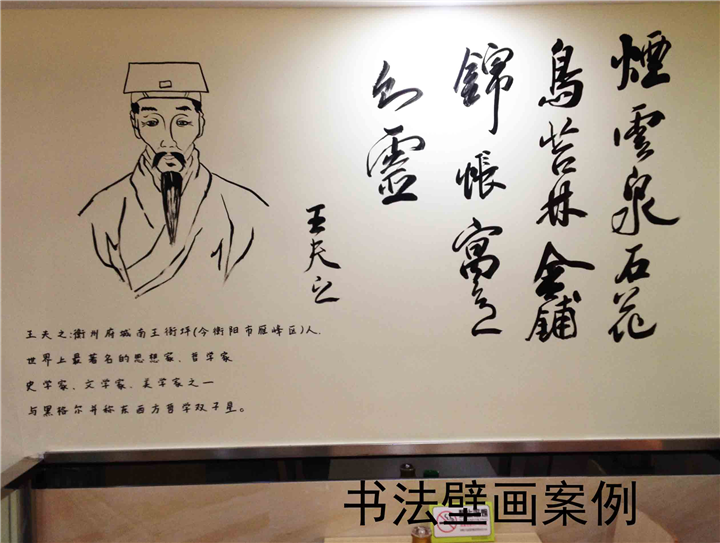 煙雲泉石花
鳥苔林金鋪
錦帳寓意
則靈
王夫之
王夫之:衡州府城南王衙坪(今衡阳市雁峰区)人.
世界上最著名的思想家、哲学家
史学家、文学家、美学家之一
与黑格尔并称东西方哲学双子星。
书法壁画案例